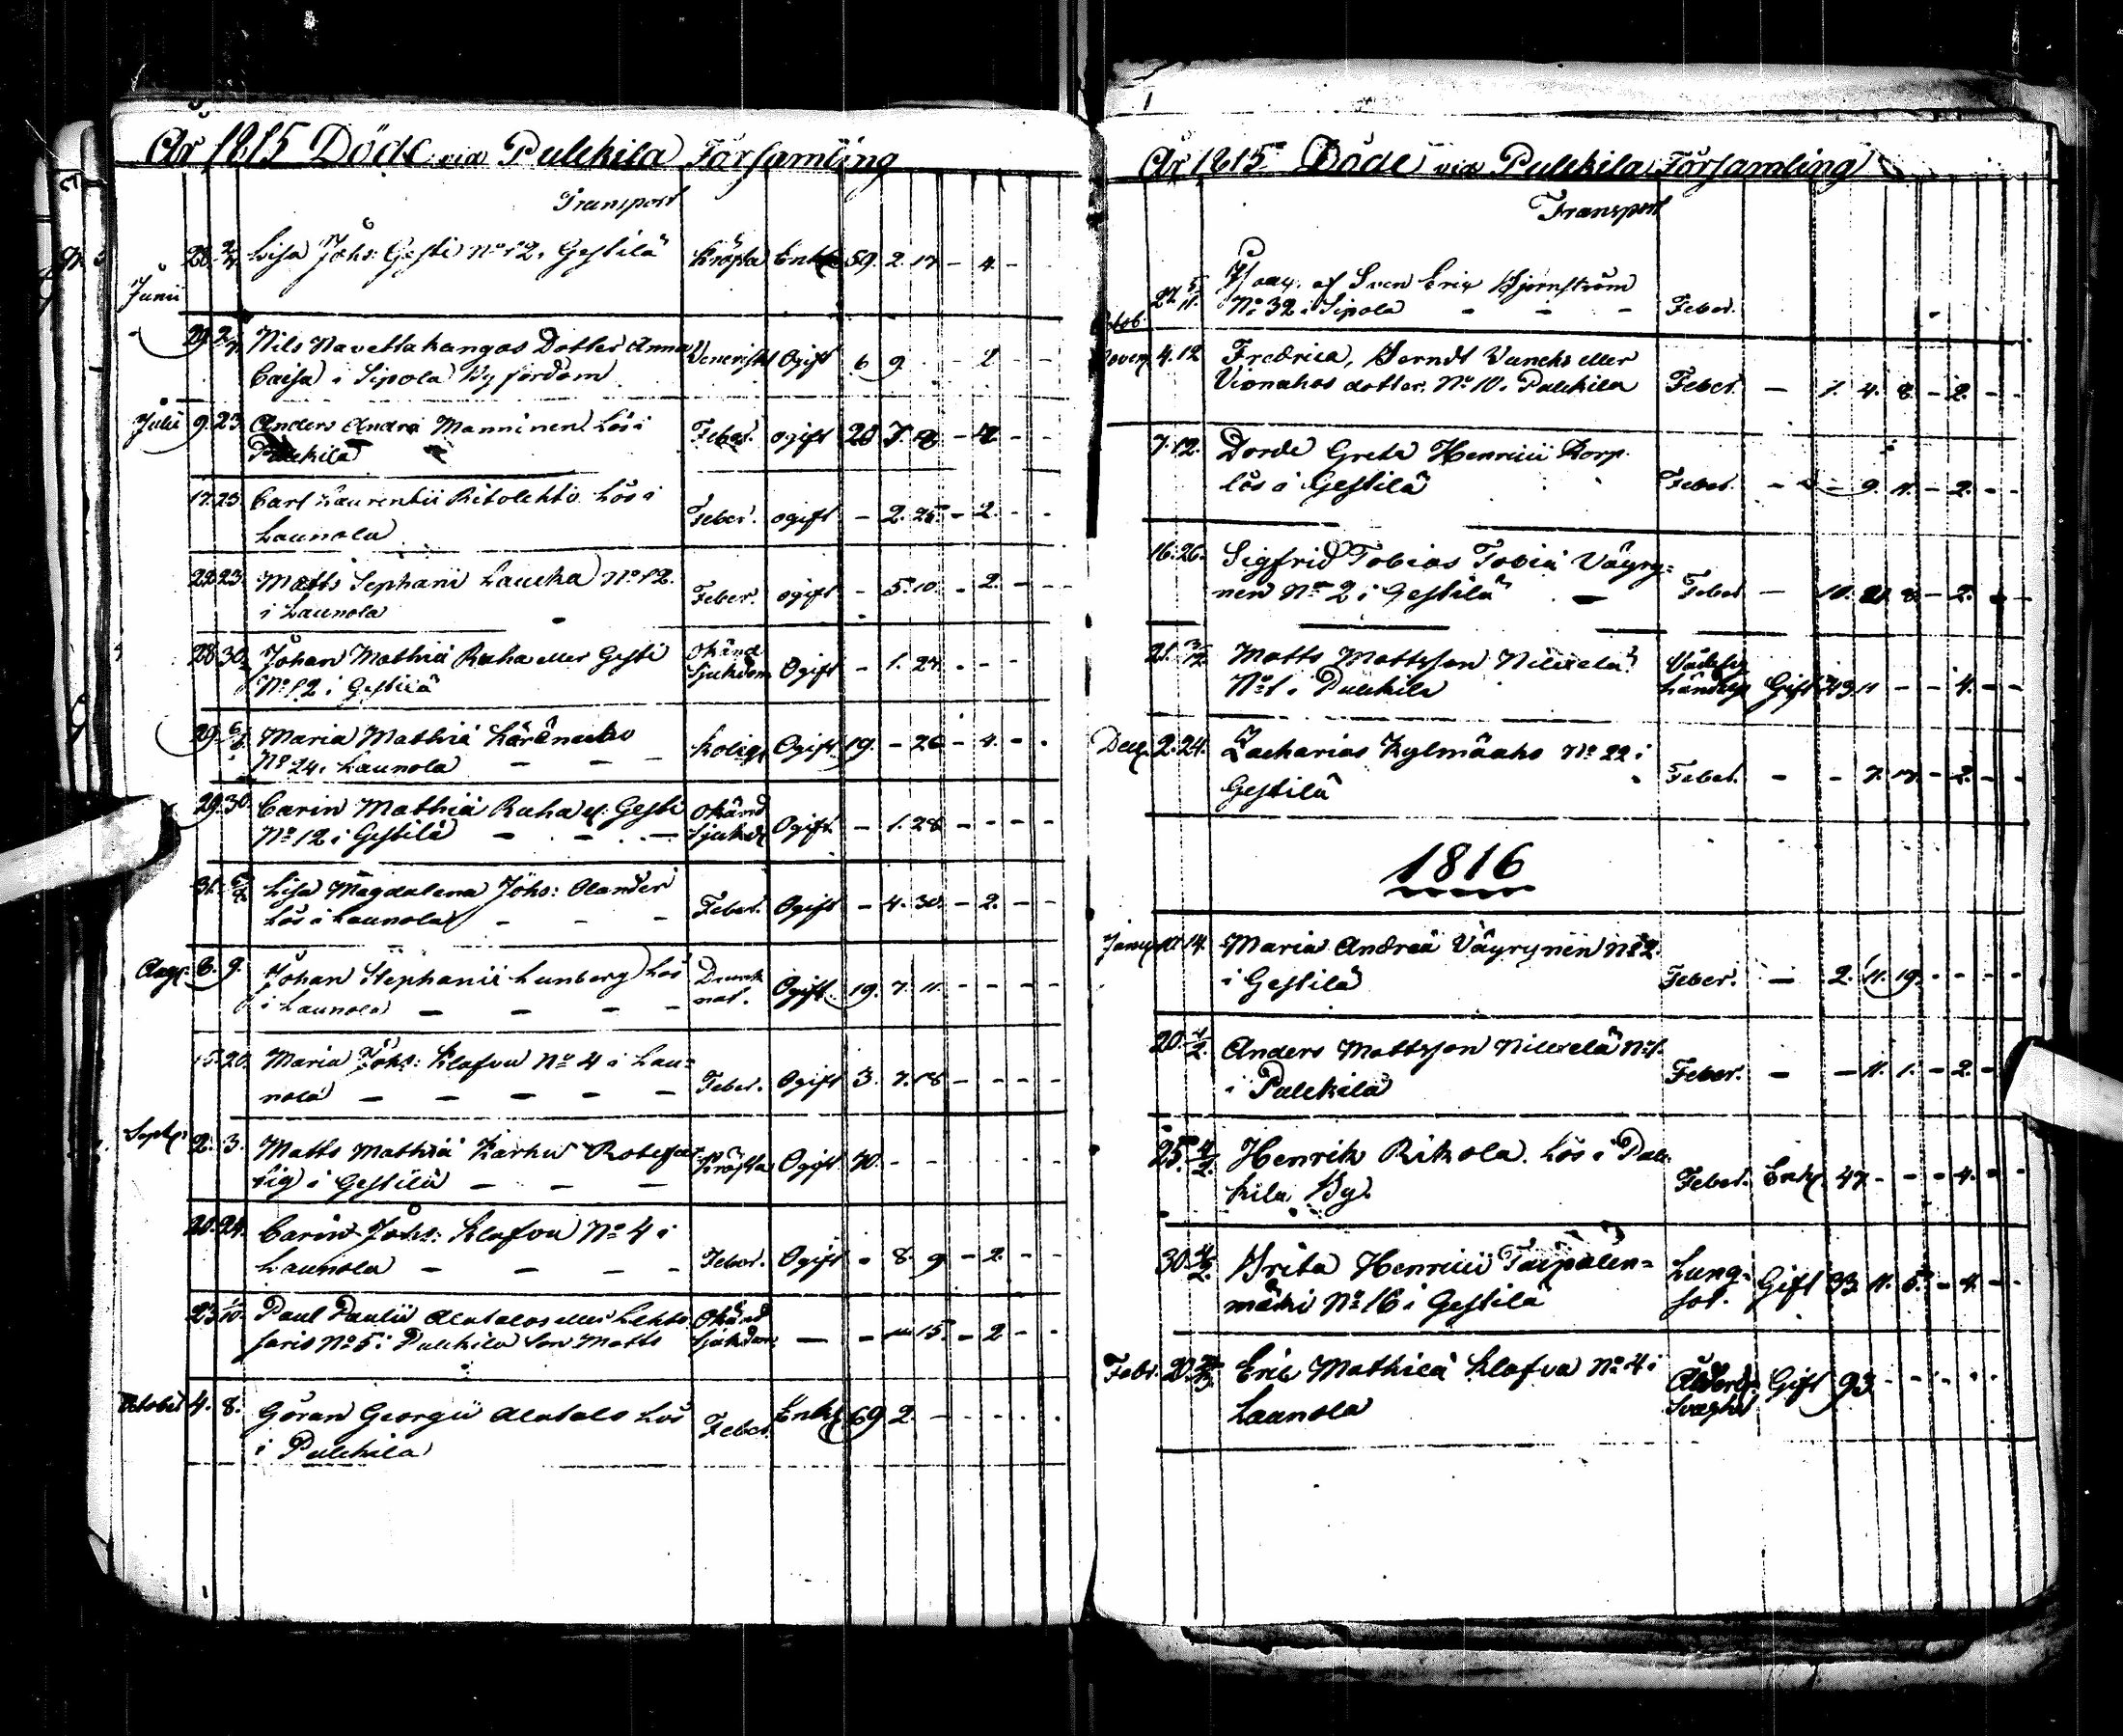 År 1815 Döde vid Pulkkila Församling
Transport
Junii 28. 2/7. Lisa Johs: Gesti No 12. Gestilä Kräfta Enka 59. 2. 17 - 4. -
29. 2/7. Nils Navettakangas Dotter Anna Venerisk Ogift 6 9. - 2 - -
Caisa i Sipola By fördom
Julii 9. 23. Anders Andreæ Manninen Lös i Feber. ogift 20 7. 18 - 4 - -
Pulkkila
17. 23. Carl Laurentii Ritolehto Lös i Feber. ogift - 2. 25. - 2. - -
Launola
22. 23. Matts Stephanii Laucka No 12. Feber. ogift - 5. 10. - 2. - -
i Launola
28 30. Johan Mathiæ Raha eller Gesti Okänd Sjukdom Ogift - 1. 27. - - -
No 12 i Gestilä
29. 6/8. Maria Mathiæ Kärenaho Kolig Ogift 19. - 26 - 4. - -
No 24 i Launola
29. 30. Carin Mathiæ Raha el. Gesti Okänd Sjukd Ogift - 1. 28 - - - -
No 12 i Gestilä
31. 6/8 Lisa Magdalena Johs: Olander Feber. Ogift - 4. 30. - 2. - -
Lös i Launola
Aug. 6. 9. Johan Stephanii Lunberg Lös Drunknat. Ogift 19. 7. 11. - - - -
i Launola
15. 20. Maria Johs: Klafvu No 4 i Lau= Feber. Ogift 3. 7. 18 - - - -
nola
Sept. 2. 3. Matts Mathiæ Karhu Rotefat= Kräfta Ogift 70. - - - - - -
tig i Gestilä
20. 24. Carin Johs: Klafvu No 4 i Feber. Ogift - 8. 9 - 2. - -
Launola
23 1/10. Paul Paulii Alatalo eller Lehto Okänd Sjukdom - - 15. - 2 - -
saris No 5 i Pulkkila Son Matts
October 4. 8. Göran Georgii Alatalo Lös Feber. Enkl 69 2. - - - - -
i Pulkkila
År 1815 Döde vid Pulkkila Församling
Transport
Octob. 27. 5/11. Isaac. af Sven Eric Björnström
No 32 i Sipola - - - Feber.
Novem 4. 12 Fredrica, Berndt eller
Vionahos dotter. No 10. Pulkkila Feber. - 1. 4. 8. - 2. - -
7. 12. Dorde Greta Henricii Korp.
lös i Gestilä Feber. - - 9. 11. - 2. - -
16. 26. Sigfrid Tobias Tobiæ Väyry=
nen No 2 i Gestilä - Feber - 10. 21. 8. - 2. - -
21. 3/12. Matts Mattsson Nikkelä
No 1 i Pulkkila Gift 43. 11 - - 4. - -
Dec. 2. 24. Zacharias Kylmäaho No 22 i Feber. - - 7. 17. - 2. - -
Gestilä
1816
Janu 14. Maria Andreæ Väyrynen No 2. Feber. - 2. 11. 19. - - - -
i Gestilä
20. 4/2. Anders Mattsson Nikkelä No 1. Feber. - - 11. 1. - 2. -
i Pulkkila
25. 4/2. Henrik Rikola. Lös i Pulk= Feber. Enkl. 47. - - - 4. - -
kila By.
30. 4/2. Brita Henricii Taipalen= Lung= sot. Gift 33. 11. 5. - 4. - -
mäki No 16 i Gestilä
Febr. 20. Eric Mathiæ Klafvu No 4 i Ålderd. Svaghet Gift 93 - - - - -
Launola